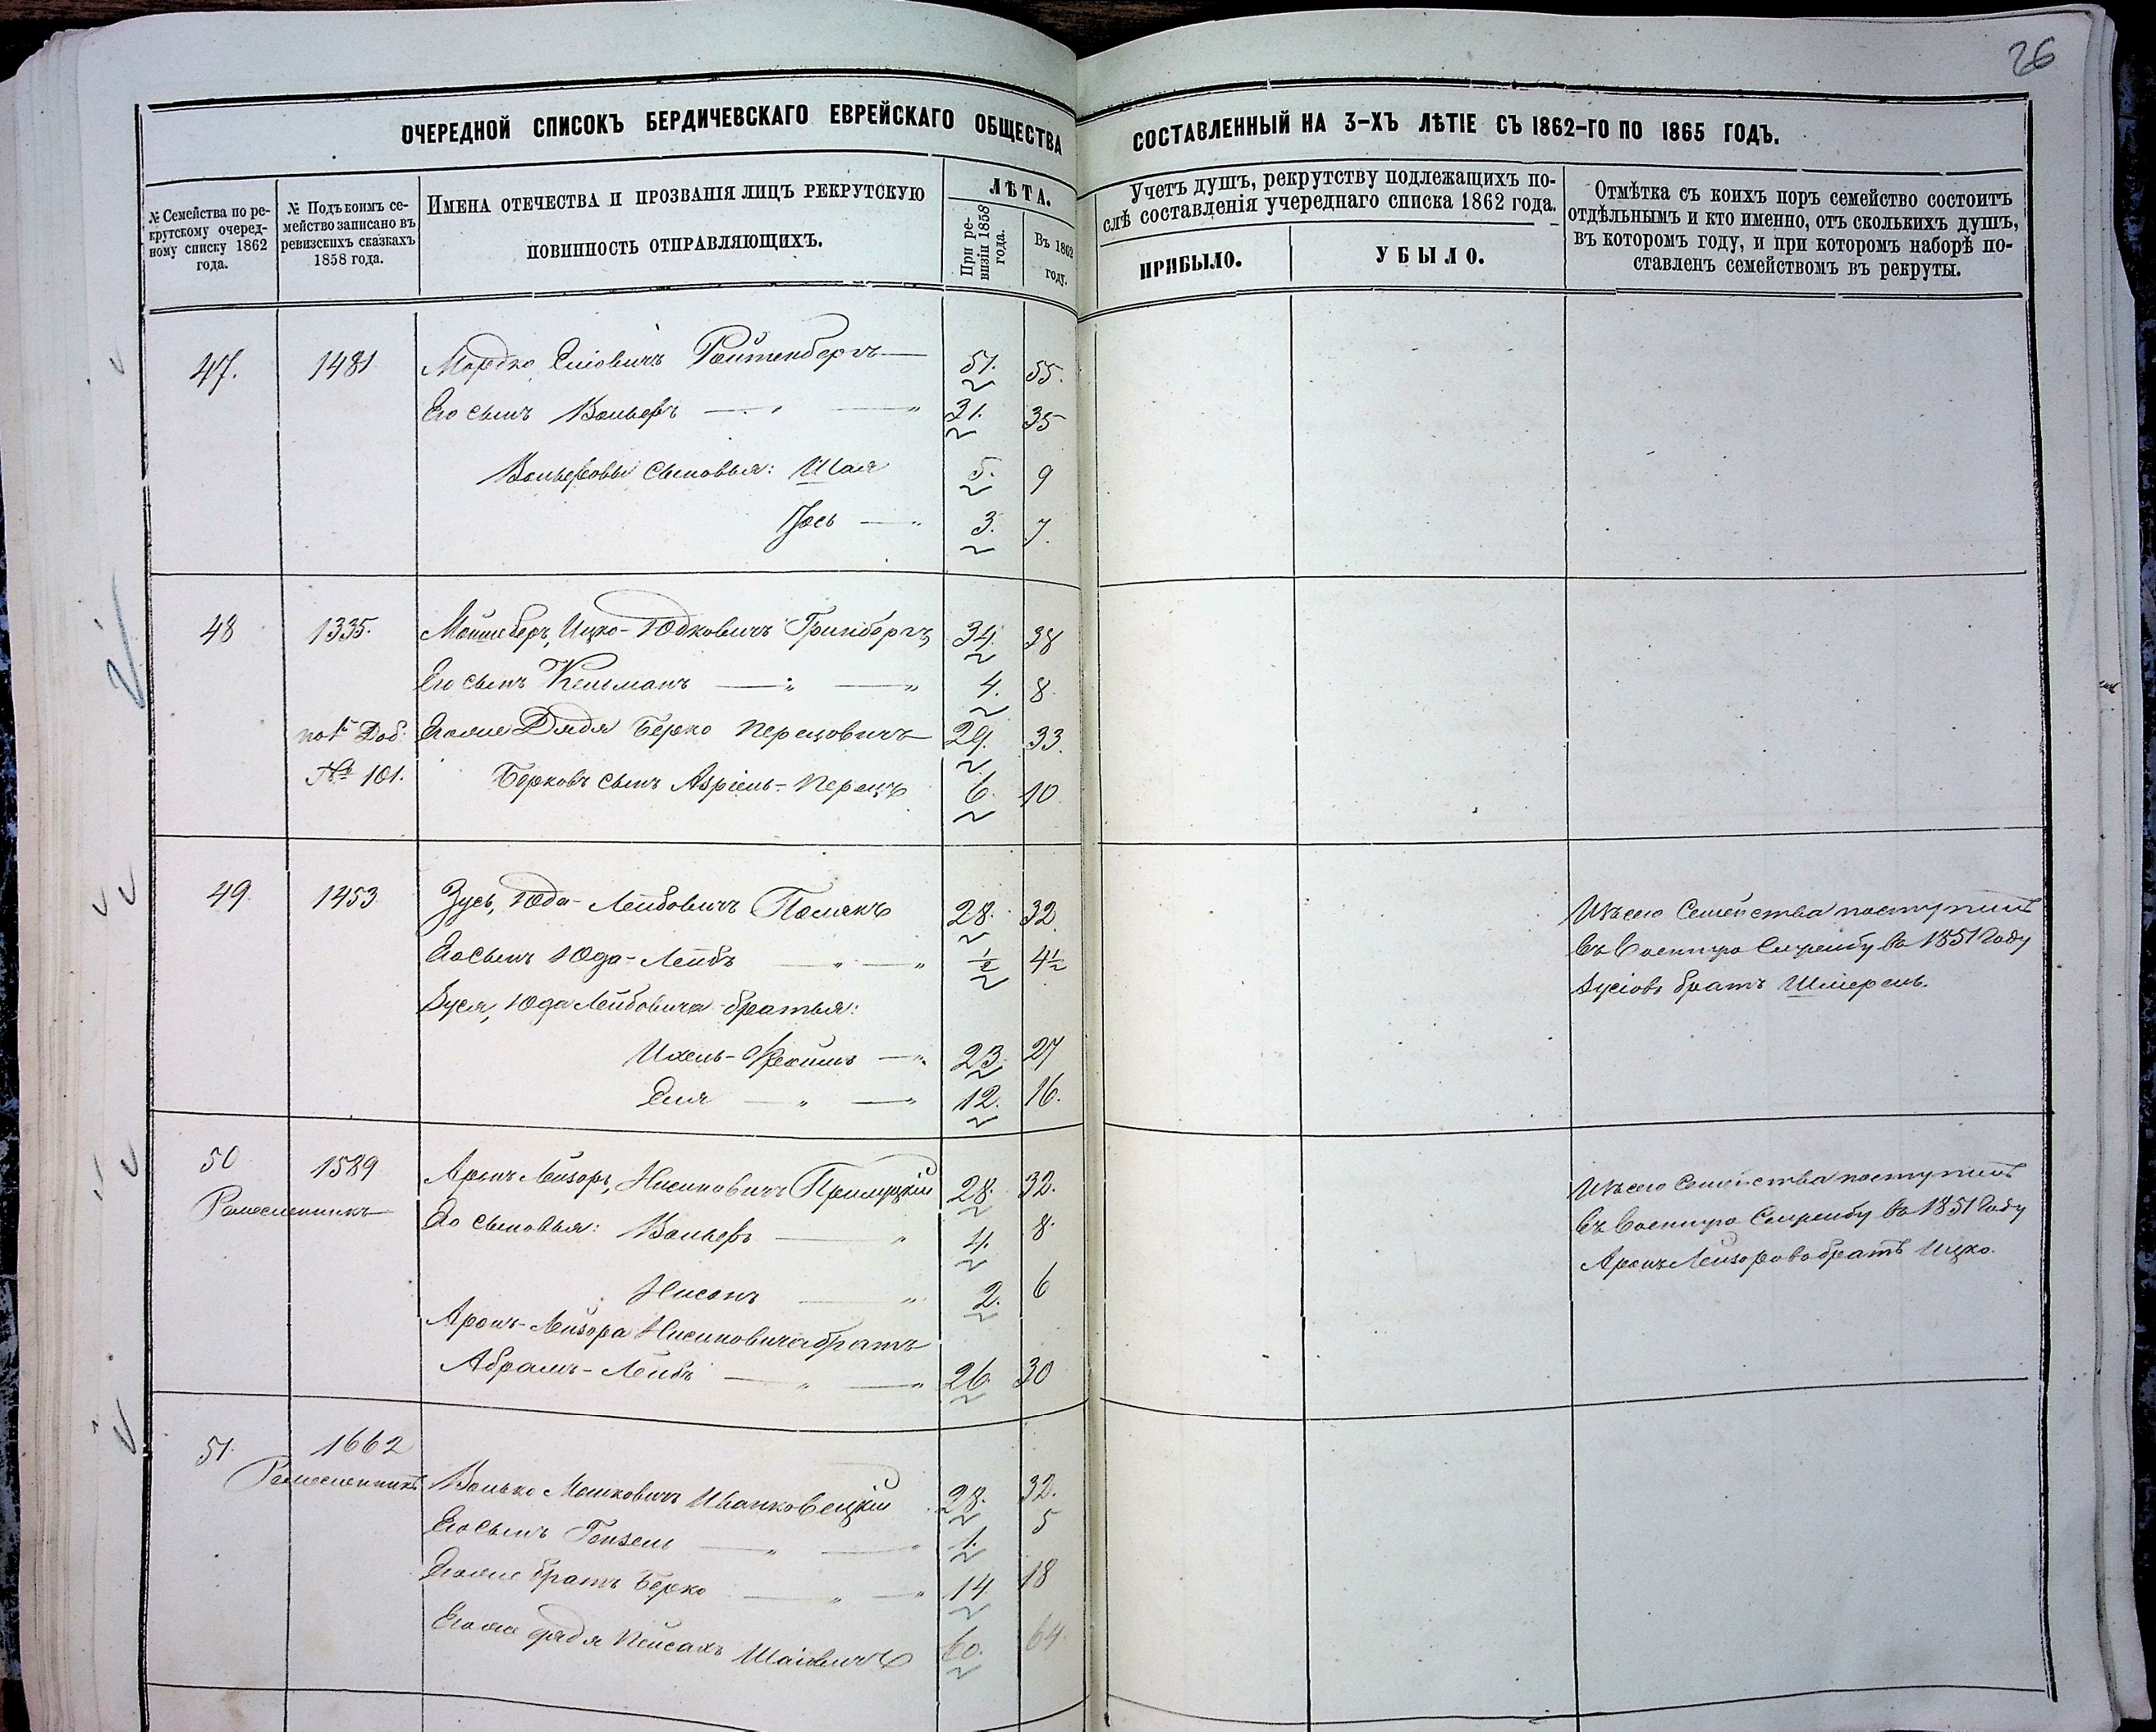 26
ОЧЕРЕДНОЙ СПИСОКЪ БЕРДИЧЕВСКАГО ЕВРЕЙСКАГО ОБЩЕСТВА СОСТАВЛЕННЫЙ НА 3-ХЪ ЛѢТІЕ СЪ 1862-ГО ПО 1865 ГОДЪ.
№ Семейства по рекрутскому очередному списку 1862 года.
№ Подъ коимъ семейство записано въ ревизскихъ сказкахъ 1858 года.
Имена отечества и прозванія лицъ рекрутскую
повинность отправляющихъ.
ЛѢТА.
При ревизіи 1858 года.
Въ 1862 году.
Учетъ душъ, рекрутству подлежащихъ по-
слѣ составленія учереднаго списка 1862 года.
ПРИБЫЛО.
УБЫЛО.
Отмѣтка съ коихъ поръ семейство состоитъ
отдѣльнымъ и кто именно, отъ сколькихъ душъ,
въ котором году, и при котором наборѣ по-
ставленъ семействомъ въ рекруты.
47. 1481 Мордко Еліовичъ Ройтенбергъ 51. 55.
Его сынъ Вольфъ 31. 35
Вольфовы сыновья: Шая 5. 9
Іось 3. 7.
48 1335. Мошко Беръ, Ицко-Юдковичъ Гринбергъ 34. 38
Его сынъ Кельманъ 4. 8.
по 1й Доб. Его же Дядя Берко Перецовичъ 29. 33.
№ 101. Берковъ сынъ Азріель-Перецъ 6. 10
49. 1453 Зусь, Юда-Лейбовичъ Полякъ 28. 32.
Его сынъ Юда-Лейбъ ½ 4½
Зуся, Юда Лейбовича братья:
Ихель-Фроимъ 23. 27
Еля 12. 16.
Изъ сего Семейства поступилъ
въ Военную Службу во 1851 Году
Зусіовъ братъ Шмерель.
50 1589 Аронъ Лейзоръ, Нисиновичъ Прилуцкій 28. 32.
Ремесленникъ
Его сыновья: Вольфъ 4. 8.
Нисонъ 2. 6
Аронъ-Лейзора Нисиновича братъ
Абрамъ-Лейбъ 26. 30
Изъ сего Семейства поступилъ
въ Военную Службу во 1851 Году
Аронъ Лейзоровъ братъ Ицко.
51. 1662
Ремесленникъ Волько Мошковичъ Иванковецкій 28. 32.
Его сынъ Гензель 1. 5
Его же братъ Берко 14 18
Его же дядя Пейсахъ Шаіовичъ 60. 64.